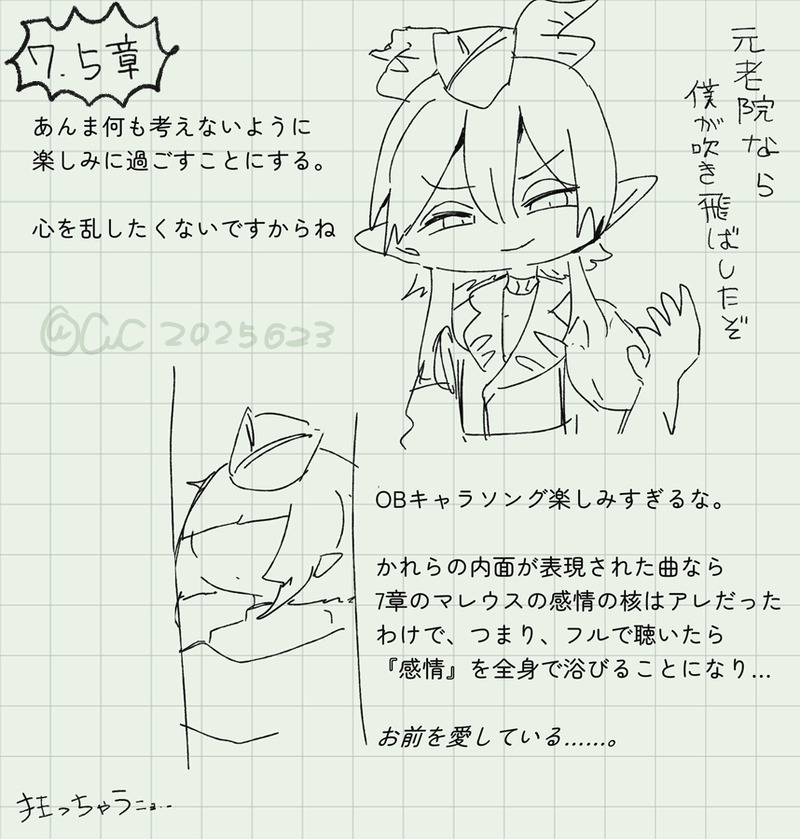 7.5章
あんま何も考えないように
楽しみに過ごすことにする。
心を乱したくないですからね
元老院なら
僕が吹き飛ばしたぞ
2025623
OBキャラソング楽しみすぎるな。
かれらの内面が表現された曲なら
7章のマレウスの感情の核はアレだった
わけで、つまり、フルで聴いたら
『感情』を全身で浴びることになり…
お前を愛している……。
狂っちゃうニョ…